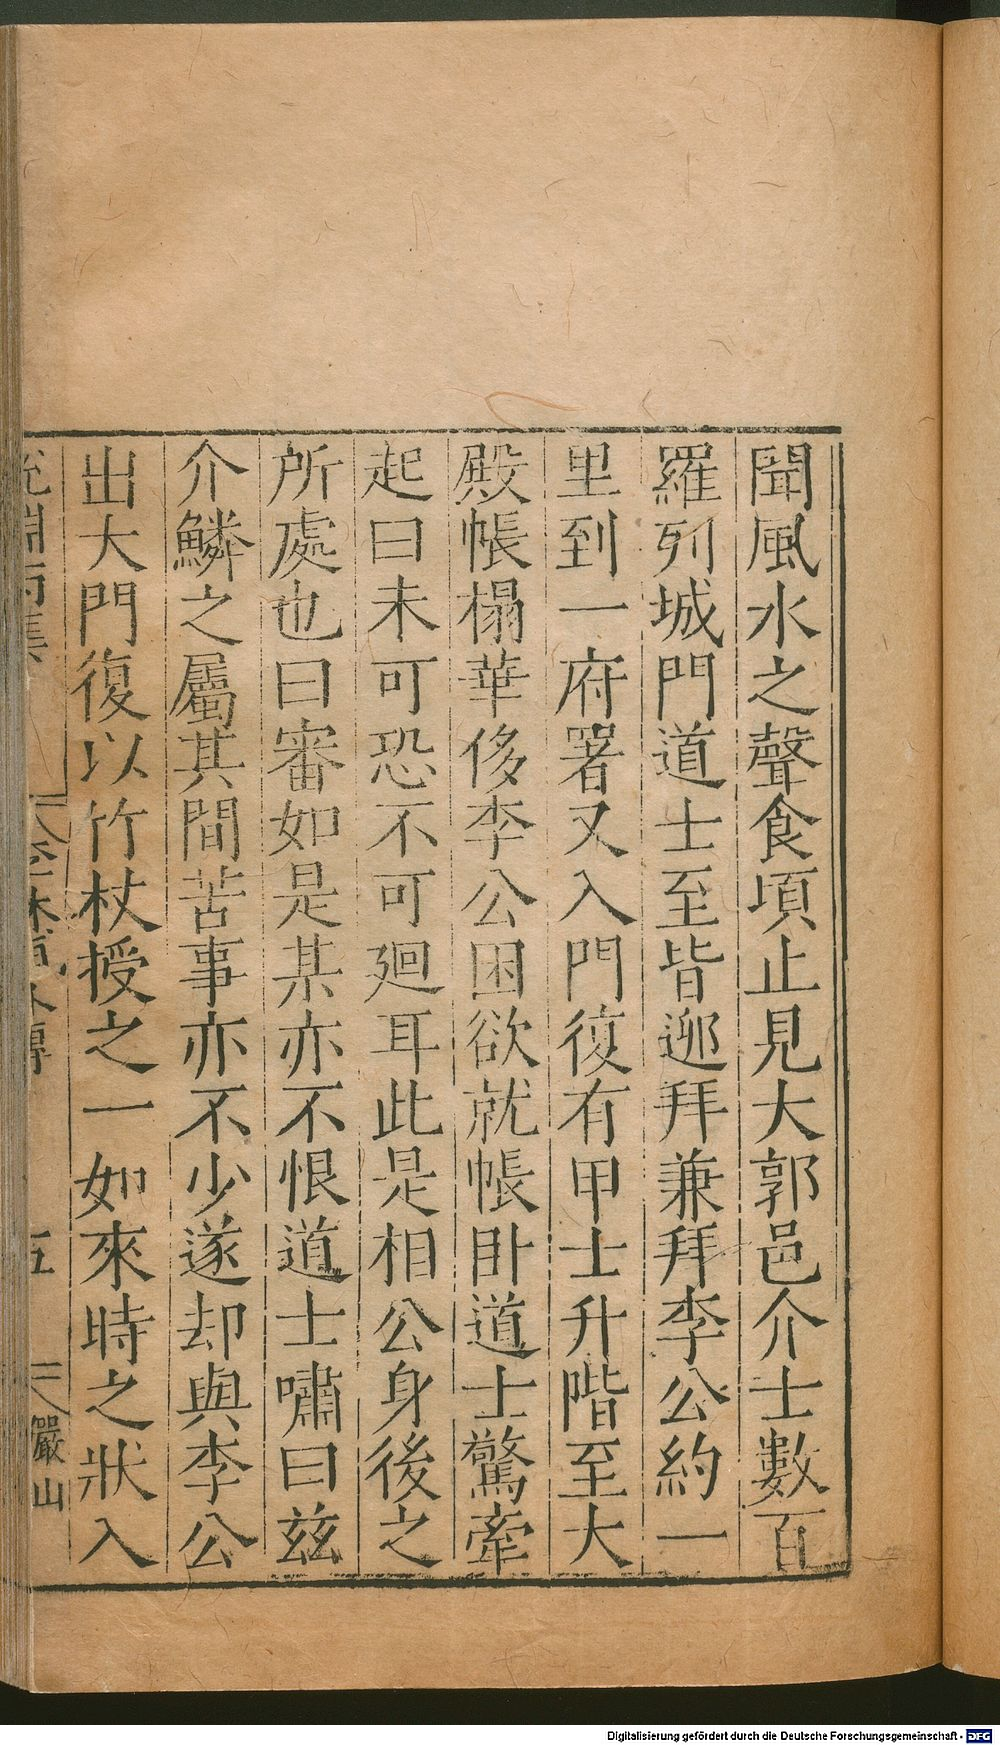 聞風水之聲食頃止見大郭邑介士數百
羅列城門道士至皆迎拜兼拜李公約一
里到一府署又入門復有甲士升階至大
殿帳榻華侈李公困欲就帳卧道士驚牽
起曰未可恐不可廻耳此是相公身後之
所處也曰審如是某亦不恨道士嘯曰兹
介鱗之屬其間苦事亦不少遂却與李公
出大門復以竹杖授之一如來時之狀入
五
嚴山
Digitalisierung gefördert durch die Deutsche Forschungsgemeinschaft - DFG